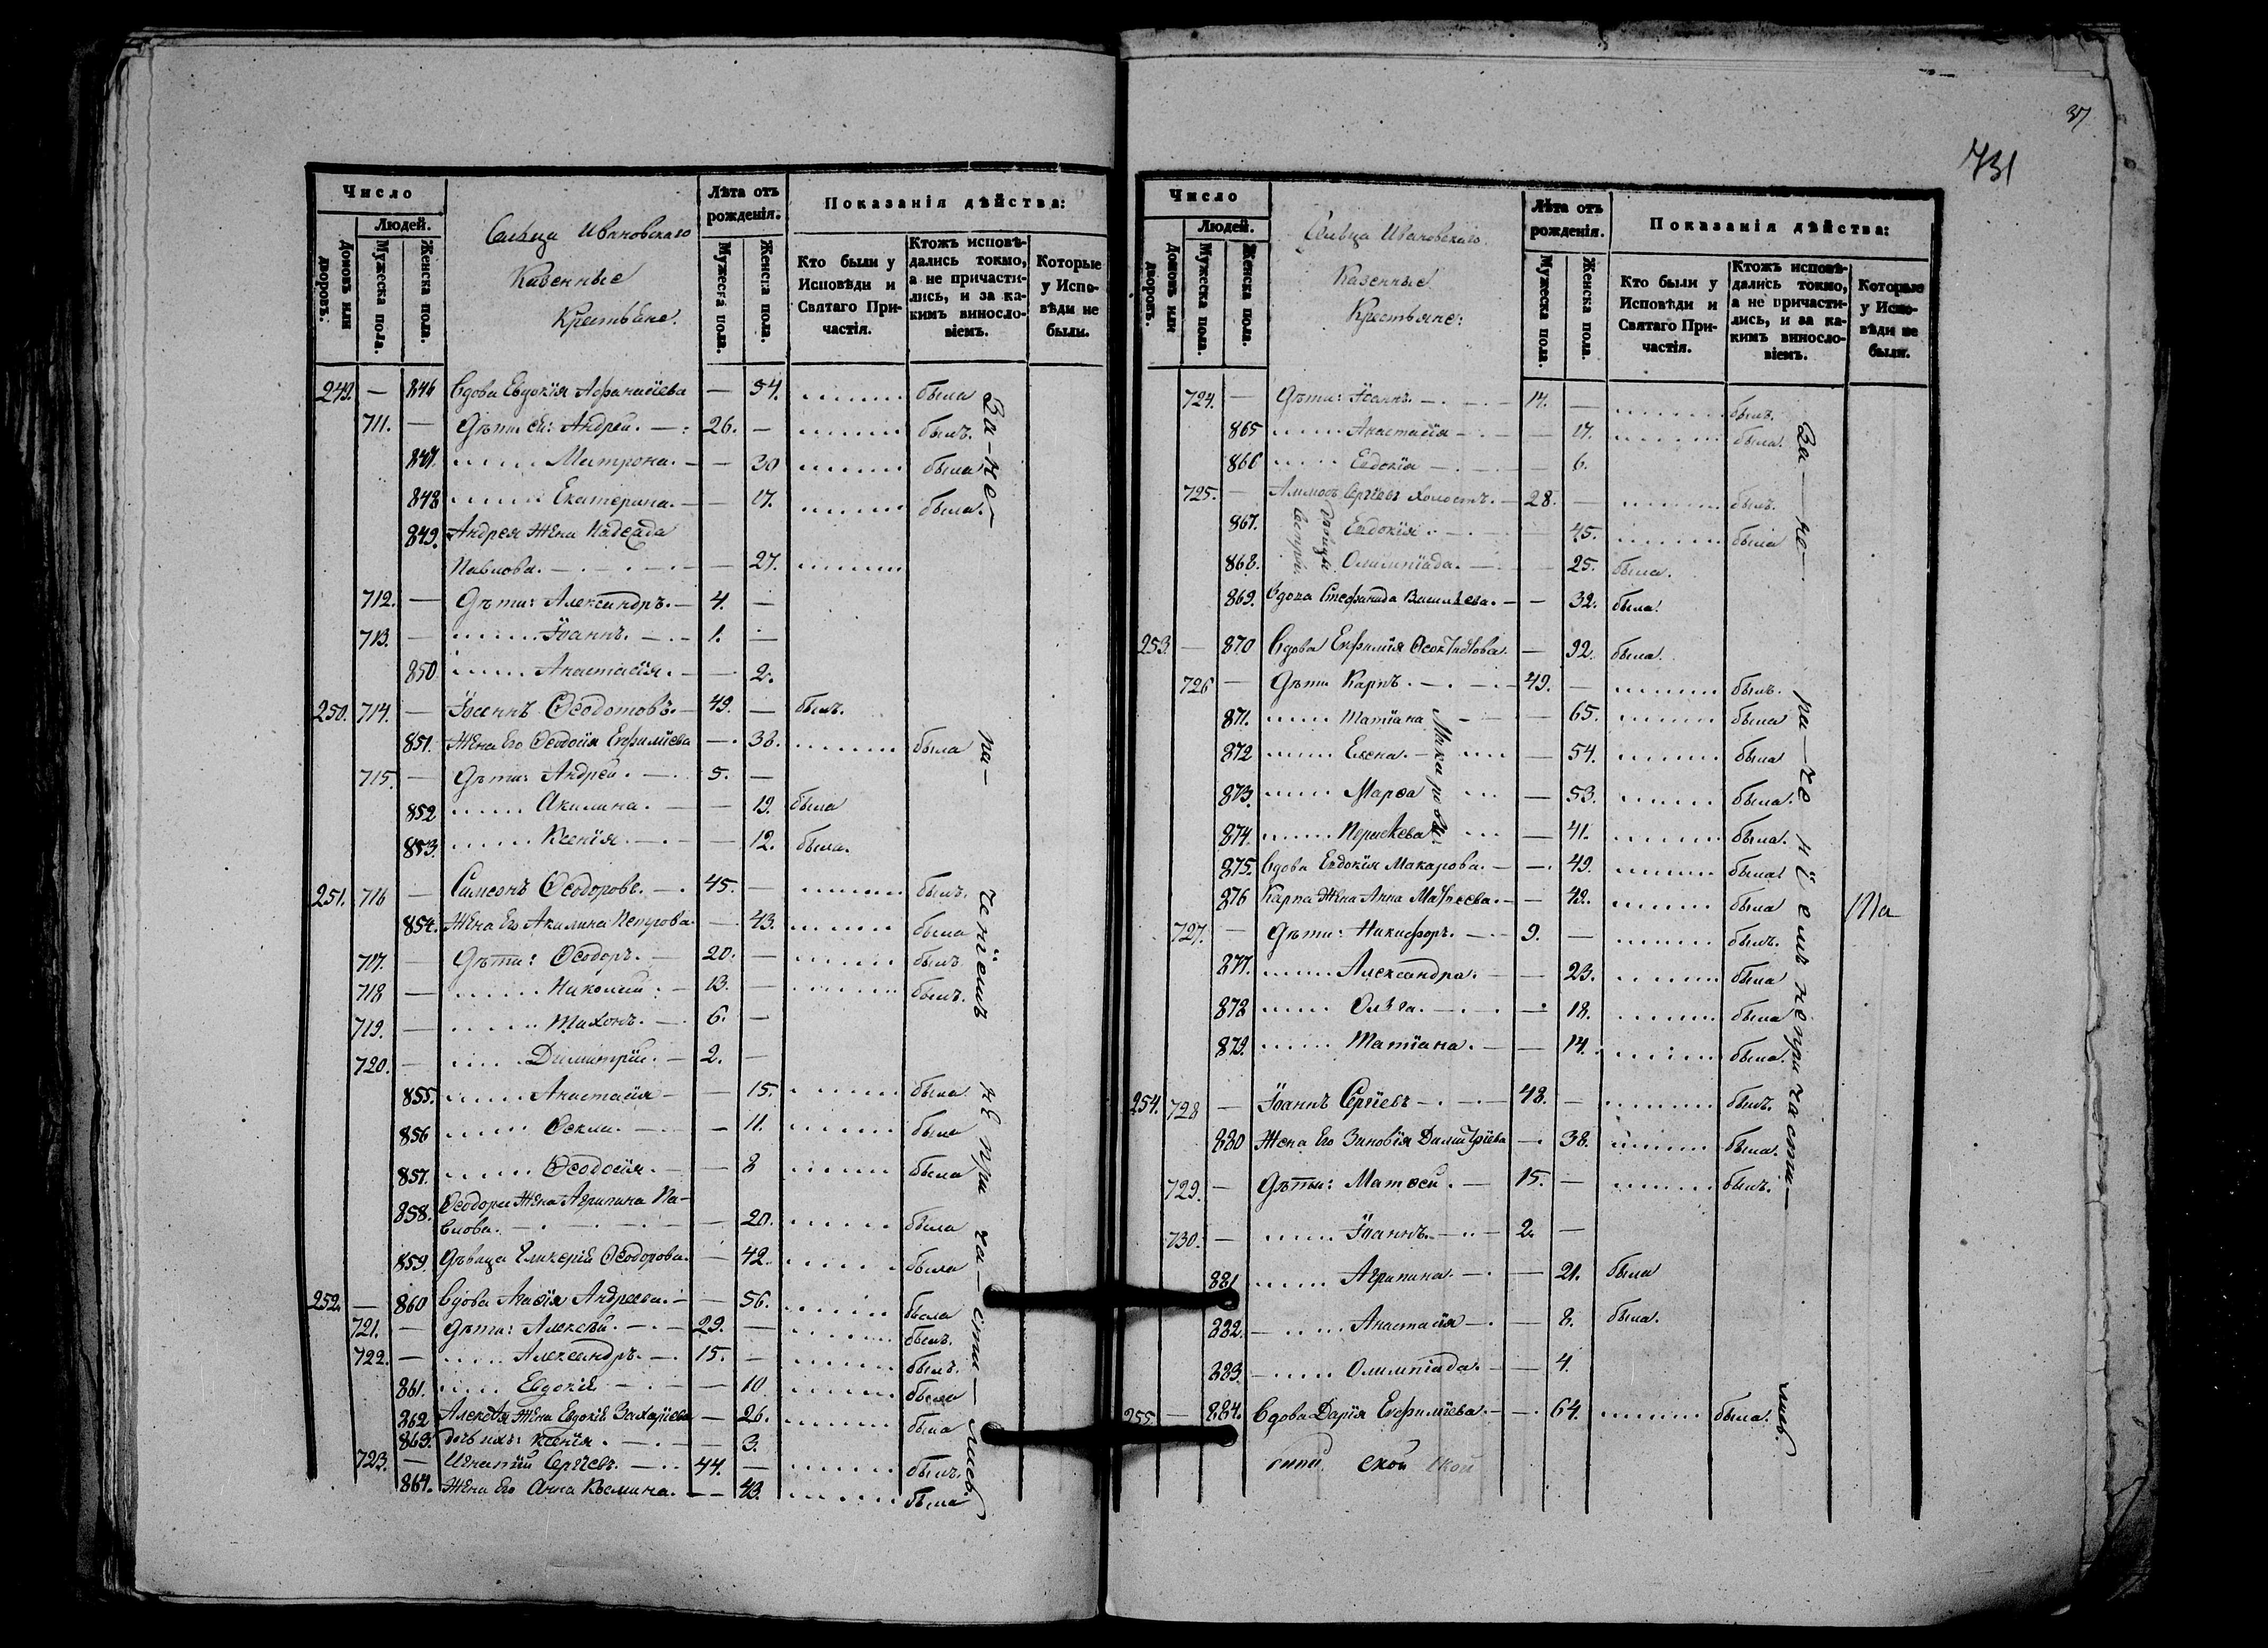 Число
Людей.
Домовъ или дворовъ.
Мужеска пола.
Женска пола.
Сельца Ивановскаго
Казенные
Крестьяне.
Лѣта отъ рожденія.
Мужеска пола.
Женска пола.
Показанія дѣйства:
Кто были у Исповѣди и Святаго Причастія.
Ктожъ исповѣдались токмо, а не причастились, и за какимъ винословіемъ.
Которые у Исповѣди не были.
249. — 846 Вдова Евдокія Афанасіева — 54. была
711. — Дѣти ея: Андрей. 26. — былъ.
847. Матрона. — 30 была
848 Екатерина. — 17. была.
849. Андрея жена Надежда
Павлова. — 27.
712. — Дѣти: Александръ. 4. —
713. — Іоаннъ. 1. —
850 Анастасія. — 2.
250. 714. — Іоаннъ Ѳеодотовъ. 49. — былъ.
851. Жена его Ѳеодосія Евфиміева — 38. была
715. — Дѣти: Андрей. 5. —
852 Акилина. — 19. была
853. Ксенія. — 12. была.
251. 716 — Симеонъ Ѳеодоровъ. 45. — былъ.
854. Жена его Акилина Петрова. — 43. была
717. — Дѣти: Ѳеодоръ. 20. — былъ
718 — Николай. 13. — былъ.
719. — Тихонъ. 6. —
720. — Димитрій. 2. —
855. Анастасія — 15. была
856 Ѳекла. — 11. была
857. Ѳеодосія. — 8 была
858. Ѳеодора жена Агрипина Па-
влова. — 20. была
859. Дѣвица Гликерія Ѳеодорова. — 42. была
252. — 860 Вдова Андреева. — 56. была
721. — Дѣти: Алексѣй. 29. — былъ.
722. — Александръ. 15. — былъ.
861. Евдокія — 10 была
862 Алексѣя жена Евдокія Захаріева — 26. была
863. дочь ихъ: Ксенія. — 3.
723. — Игнатій Сергіевъ. 44. — былъ.
864. Жена его Анна Козмина. — 43. была
За-не-
ра-
ченіемъ
не при ча-сти-лись.
37
731
Число
Людей.
Домовъ или дворовъ.
Мужеска пола.
Женска пола.
Сельца Ивановскаго.
Казенные
Крестьяне:
Лѣта отъ рожденія.
Мужеска пола.
Женска пола.
Показанія дѣйства:
Кто были у Исповѣди и Святаго Причастія.
Ктожъ исповѣдались токмо, а не причастились, и за какимъ винословіемъ.
Которые у Исповѣди не были.
724. — Дѣти: Іоаннъ. 14. — былъ.
865 Анастасія — 17. была.
866 Евдокія — 6.
725. — Сергіевъ холостъ. 28. — былъ.
867. Евдокія. 45. была
868. Олимпіада. 25. была.
869. Вдова Стефанида Васильева. — 32. была.
253. — 870 Вдова Евфимія — 92. была.
726 — Дѣти Карпъ. 49. — былъ.
871. Татіана — 65. была
872 Елена. — 54. была
873. Марѳа — 53. была.
874. Параскева — 41. была.
Макаровы.
875. Вдова Евдокія Макарова. — 49. была
876 Карпа жена Анна Матѳеева. — 42. была
727. — Дѣти: Никифоръ. 9. — былъ.
877. Александра. — 23. была
878 Ольга. — 18. была
879. Татіана. — 14. была.
254. 728 — Іоаннъ Сергіевъ 48. — былъ.
880 Жена его Зиновія Димитріева — 38. была.
729. — Дѣти: Матѳей. 15. — былъ.
730. — Іоаннъ. 2. —
881 Агрипина. — 21. была
882. Анастасія — 8. была.
883. Олимпіада. — 4.
255. — 884. Вдова Дарія Евфиміева. — 64. была.
ской ской
За-не-
ра-че ніемъ непричасти-
лись.